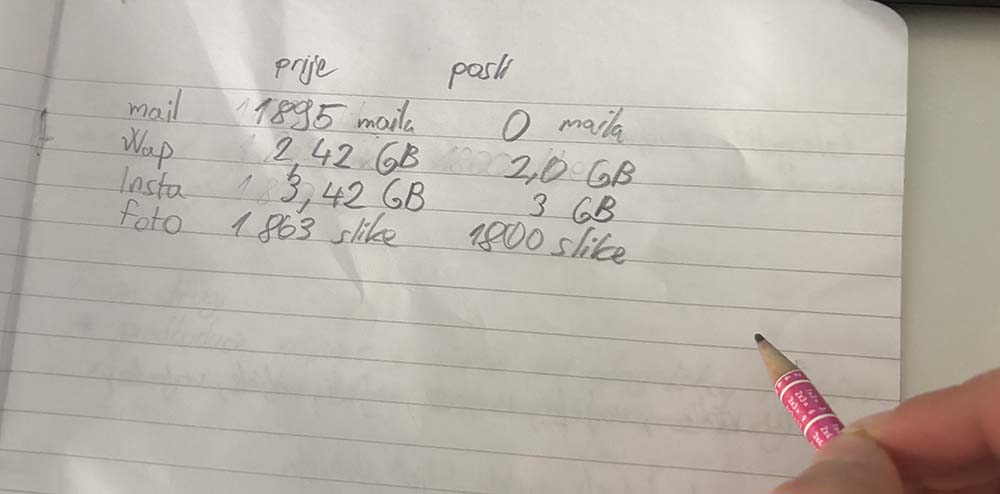 prije posli
mail 1895 maila 0 maila
Wap 2,42 GB 2,0 GB
Insta 3,42 GB 3 GB
foto 1863 slike 1800 slike